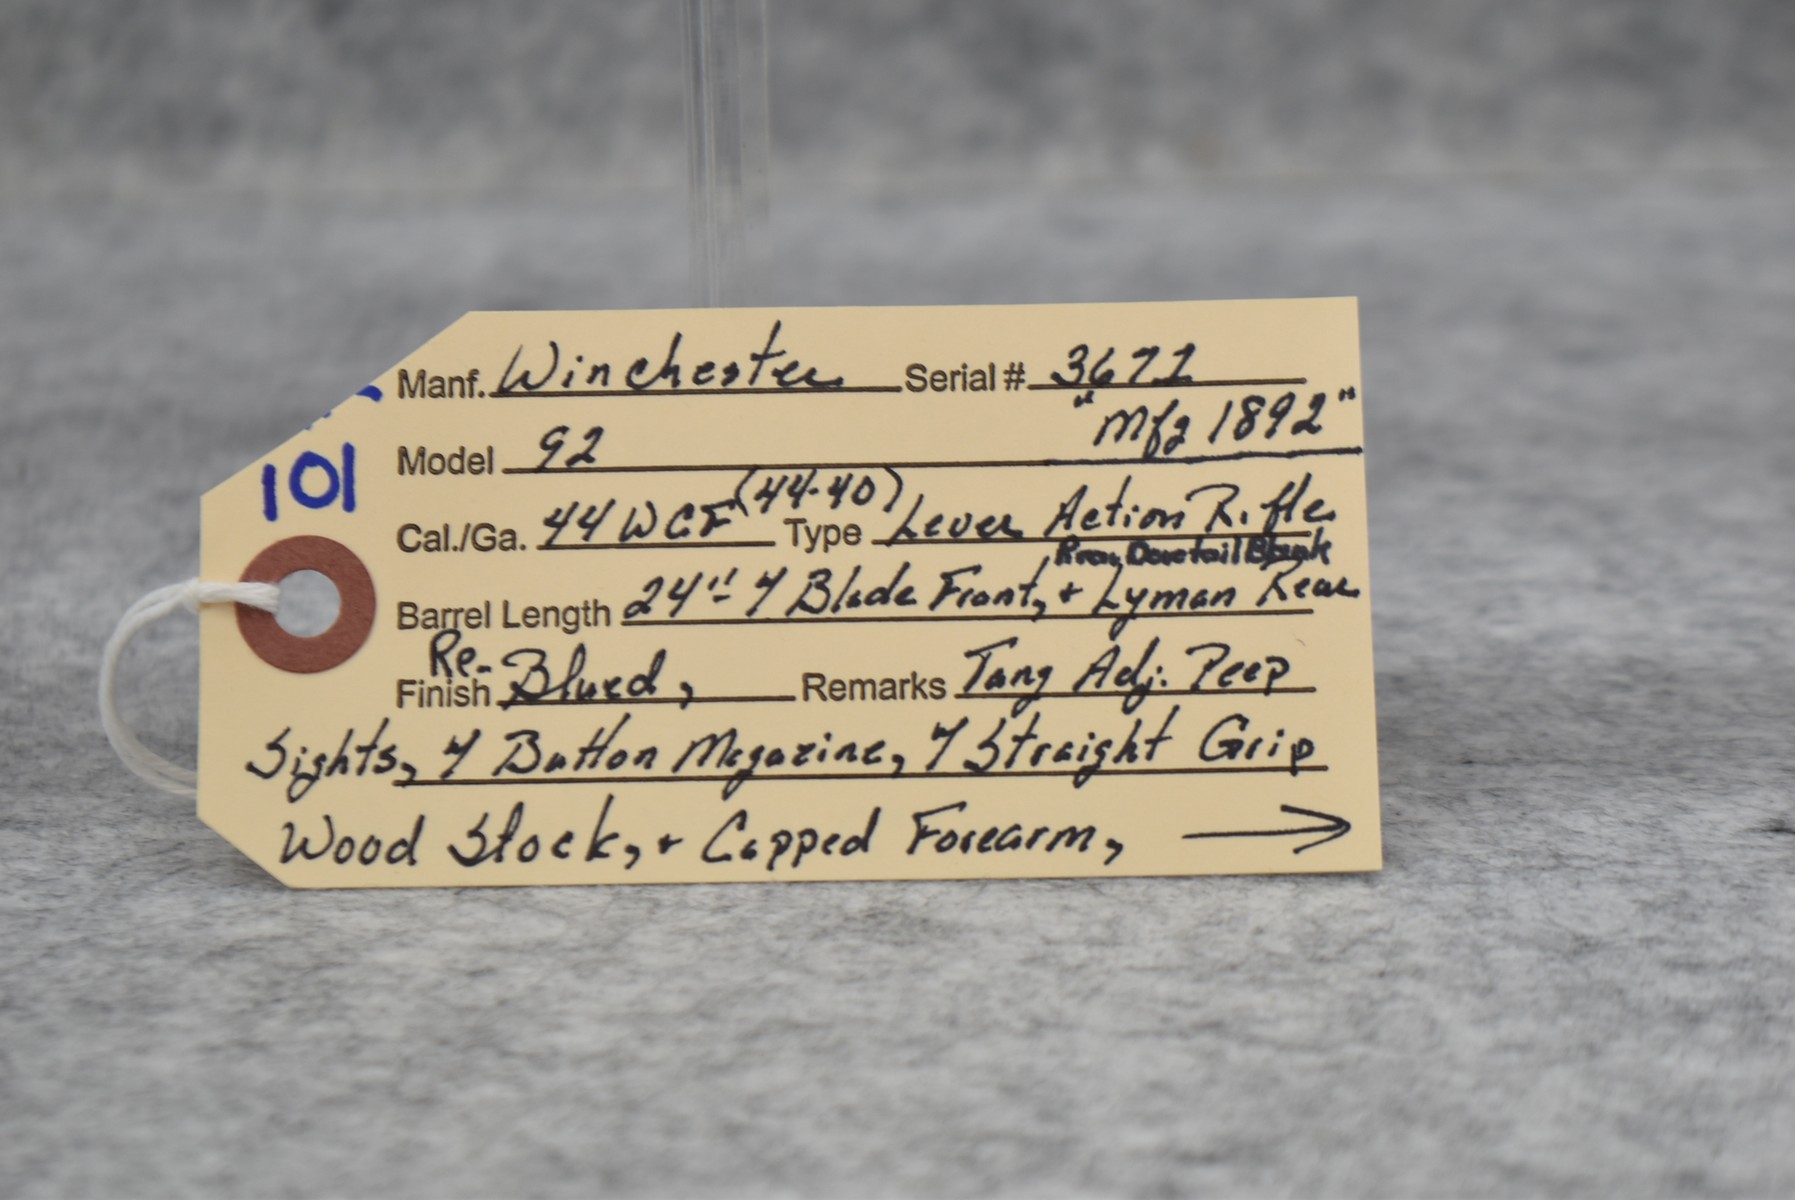 Manf. Winchester Serial # 3671
Model 92 "Mfg 1892"
101
Cal./Ga. 44 WCF (44-40) Type Lever Action Rifle
Rear Dovetail Blank
Barrel Length 24" Blade Front, + Lyman Rear
Re-
Finish Blued, Remarks Tang Adj. Peep
Sights, Button Magazine, Straight Grip
Wood Stock, + Capped Forearm, →